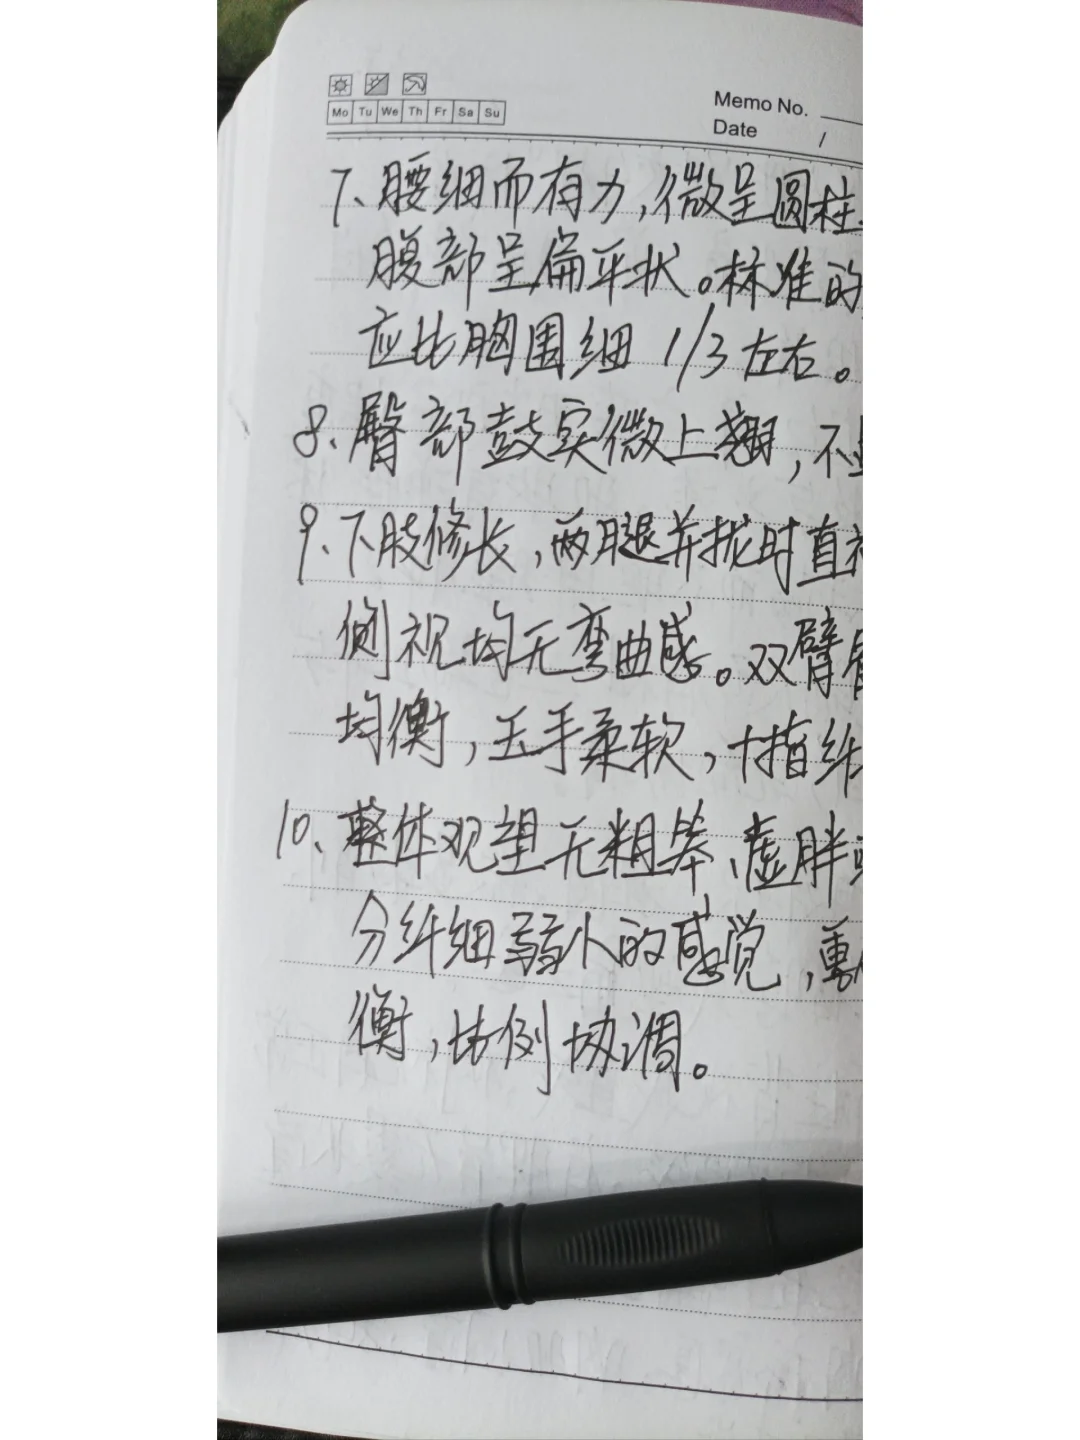 Mo Tu We Th Fr Sa Su
Memo No.
Date /
7、腰细而有力,微呈圆柱
腹部呈扁平状。标准的
应比胸围细 1/3 左右。
8、臀部鼓实微上翘,不
9、下肢修长,两腿并拢时直
侧视均无弯曲感。双臂
均衡,玉手柔软,十指纤
10、整体观望无粗笨、虚胖或
分纤细弱小的感觉,重
衡,比例协调。